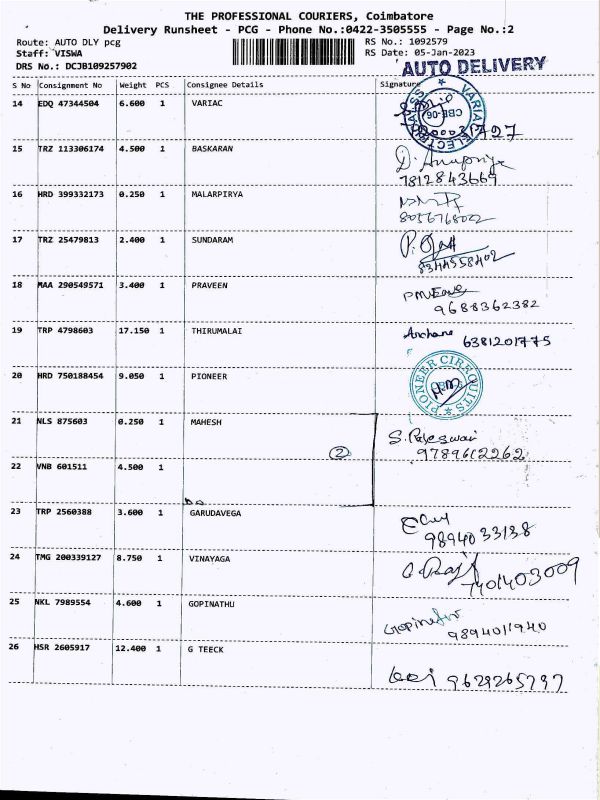 THE PROFESSIONAL COURIERS, Coimbatore
Delivery Runsheet - PCG - Phone No.:0422-3505555 - Page No.:2
Route: AUTO DLY pcg
RS No.: 1092579
Staff: VISWA
RS Date: 05-Jan-2023
DRS No.: DCJB109257902
AUTO DELIVERY
S No Consignment No Weight PCS Consignee Details Signature
14 EDQ 47344504 6.600 1 VARIAC
VARIAC ELECTR
CBE-06
15 TRZ 113306174 4.500 1 BASKARAN
D. Anupriya
7812843669
16 HRD 399332173 0.250 1 MALARPIRYA
8056768022
17 TRZ 25479813 2.400 1 SUNDARAM
8344558402
18 MAA 290549571 3.400 1 PRAVEEN
9688362382
19 TRP 4798603 17.150 1 THIRUMALAI
Archana 6381201775
20 HRD 750188454 9.050 1 PIONEER
PIONEER CIRKQUITS
21 NLS 875603 0.250 1 MAHESH
S. Rajeswari
9789612262
2
22 VNB 601511 4.500 1
23 TRP 2560388 3.600 1 GARUDAVEGA
9894033138
24 TMG 200339127 8.750 1 VINAYAGA
7401403009
25 NKL 7989554 4.600 1 GOPINATHU
Gopinath
9894011940
26 HSR 2605917 12.400 1 G TEECK
9629265797